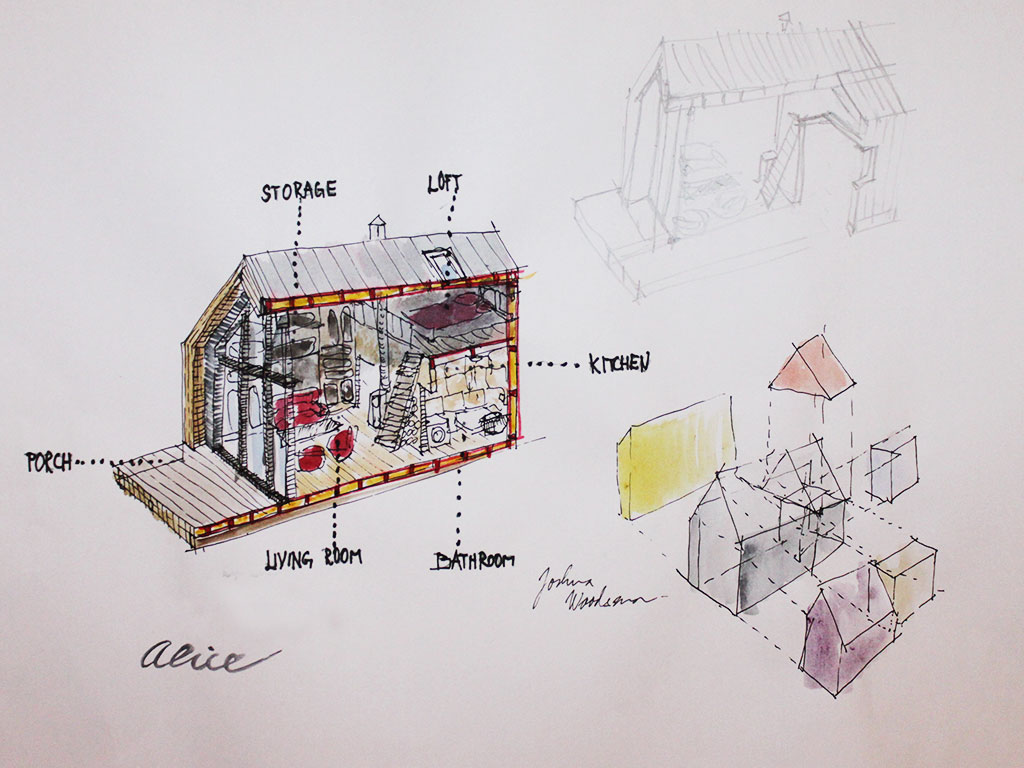 STORAGE
LOFT
KITCHEN
PORCH
LIVING ROOM
BATHROOM
Joshua
alice